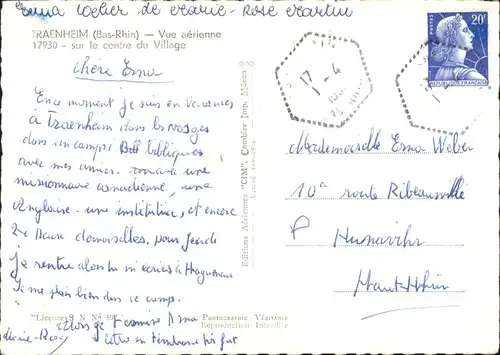 Erna Weber de Marie-Rose Martin
TRAENHEIM (Bas-Rhin) — Vue aérienne
17930 - sur le centre du Village
chère Erna
En ce moment je suis en vacances
à Traenheim dans les vosges
dans un camp bibliques
avec mes amies
missionnaire canadienne, une
Anglaise - une institutrice, et encore
2 demoiselles, pour jeudi
je rentre alors tu m'écris à Haguenau
Je me plais bien dans ce camp.
"Licence
Marie-Rose
Editions Aériennes "CIM" Combier Imp. Mâcon
PHOTOGRAPHIE VÉRITABLE
Reproduction Interdite
17
1 - 4
POSTES
20F
RÉPUBLIQUE FRANÇAISE
Mademoiselle Erna Weber
10 route Ribeauvillé
Hunawihr
Haut-Rhin